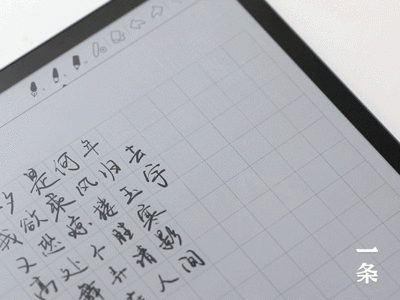 夕是何年
我欲乘风归去
又恐琼楼玉宇
高处不胜寒
舞弄清影
人间
一条